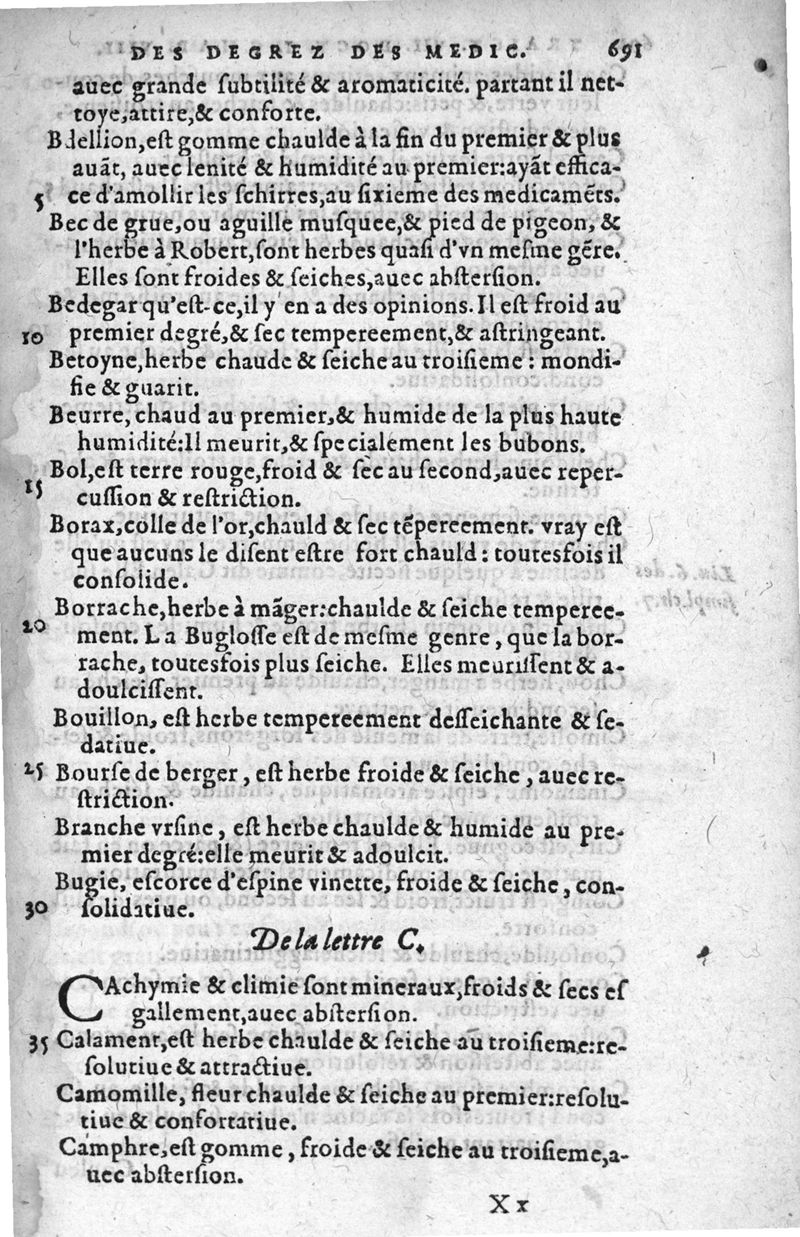 DES DEGREZ DES MEDIC. 691
auec grande ſubtilité & aromaticité. partant il net-
toye, attire, & conforte.
Bdellion, eſt gomme chaulde à la fin du premier & plus
auãt, auec lenité & humidité au premier: ayãt effica-
5 ce d'amollir les ſchirres, au ſixieme des medicamẽts.
Bec de grue, ou aguille muſquee, & pied de pigeon, &
l'herbe à Robert, ſont herbes quaſi d'vn meſme gẽre.
Elles ſont froides & ſeiches, auec abſterſion.
Bedegar qu'eſt-ce, il y en a des opinions. Il eſt froid au
10 premier degré, & ſec tempereement, & aſtringeant.
Betoyne, herbe chaude & ſeiche au troiſieme: mondi-
fie & guarit.
Beurre, chaud au premier, & humide de la plus haute
humidité: Il meurit, & ſpecialement les bubons.
15 Bol, eſt terre rouge, froid & ſec au ſecond, auec reper-
cuſſion & reſtriction.
Borax, colle de l'or, chauld & ſec tẽpereement. vray eſt
que aucuns le diſent eſtre fort chauld: toutesfois il
conſolide.
Borrache, herbe à mãger: chaulde & ſeiche temperee-
20 ment. La Bugloſſe eſt de meſme genre, que la bor-
rache, toutesfois plus ſeiche. Elles meuriſſent & a-
doulciſſent.
Bouillon, eſt herbe tempereement deſſeichante & ſe-
datiue.
25 Bourſe de berger, eſt herbe froide & ſeiche, auec re-
ſtriction.
Branche vrſine, eſt herbe chaulde & humide au pre-
mier degré: elle meurit & adoulcit.
Bugie, eſcorce d'eſpine vinette, froide & ſeiche, con-
30 ſolidatiue.
De la lettre C.
CAchymie & climie ſont mineraux, froids & ſecs eſ
gallement, auec abſterſion.
35 Calament, eſt herbe chaulde & ſeiche au troiſieme: re-
ſolutiue & attractiue.
Camomille, fleur chaulde & ſeiche au premier: reſolu-
tiue & confortatiue.
Camphre, eſt gomme, froide & ſeiche au troiſieme, a-
uec abſterſion.
Xx